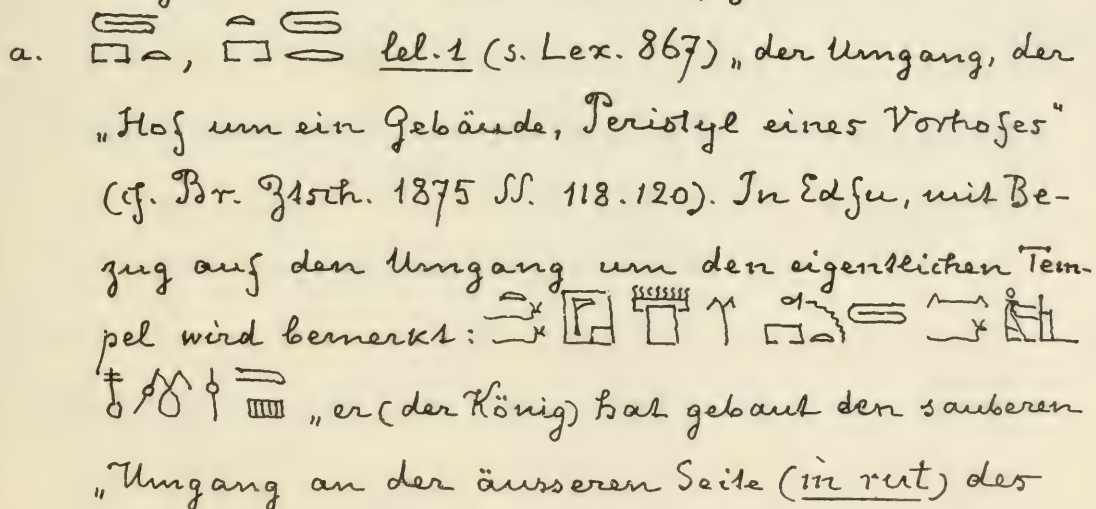 a. , lel.1 (s. Lex. 867) „der Umgang, der
„Hof um ein Gebäude, Peristyl eines Vorhofes“
(cf. Br. Ztsch. 1875 SS. 118.120). In Edfu, mit Be-
zug auf den Umgang um den eigentlichen Tem-
pel wird bemerkt:
„er (der König) hat gebaut den sauberen
„Umgang an der äusseren Seite (in rut) des